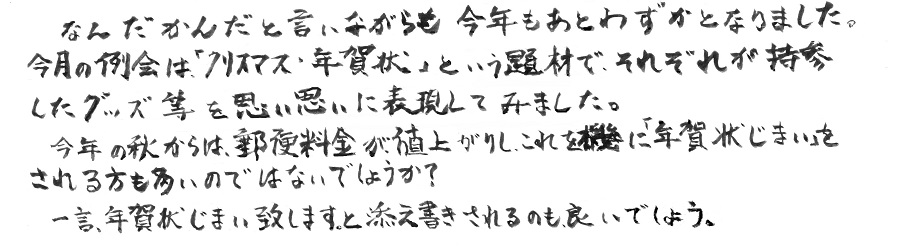 なんだかんだと言いながらも 今年もあとわずかとなりました。
今月の例会は、「クリスマス・年賀状」という題材で、それぞれが持参
したグッズ等を思い思いに表現してみました。
今年の秋からは、郵便料金が値上がりし、これを機に「年賀状じまい」を
される方も多いのではないでしょうか?
一言、年賀状じまい致します。と添え書きされるのも、良いでしょう。